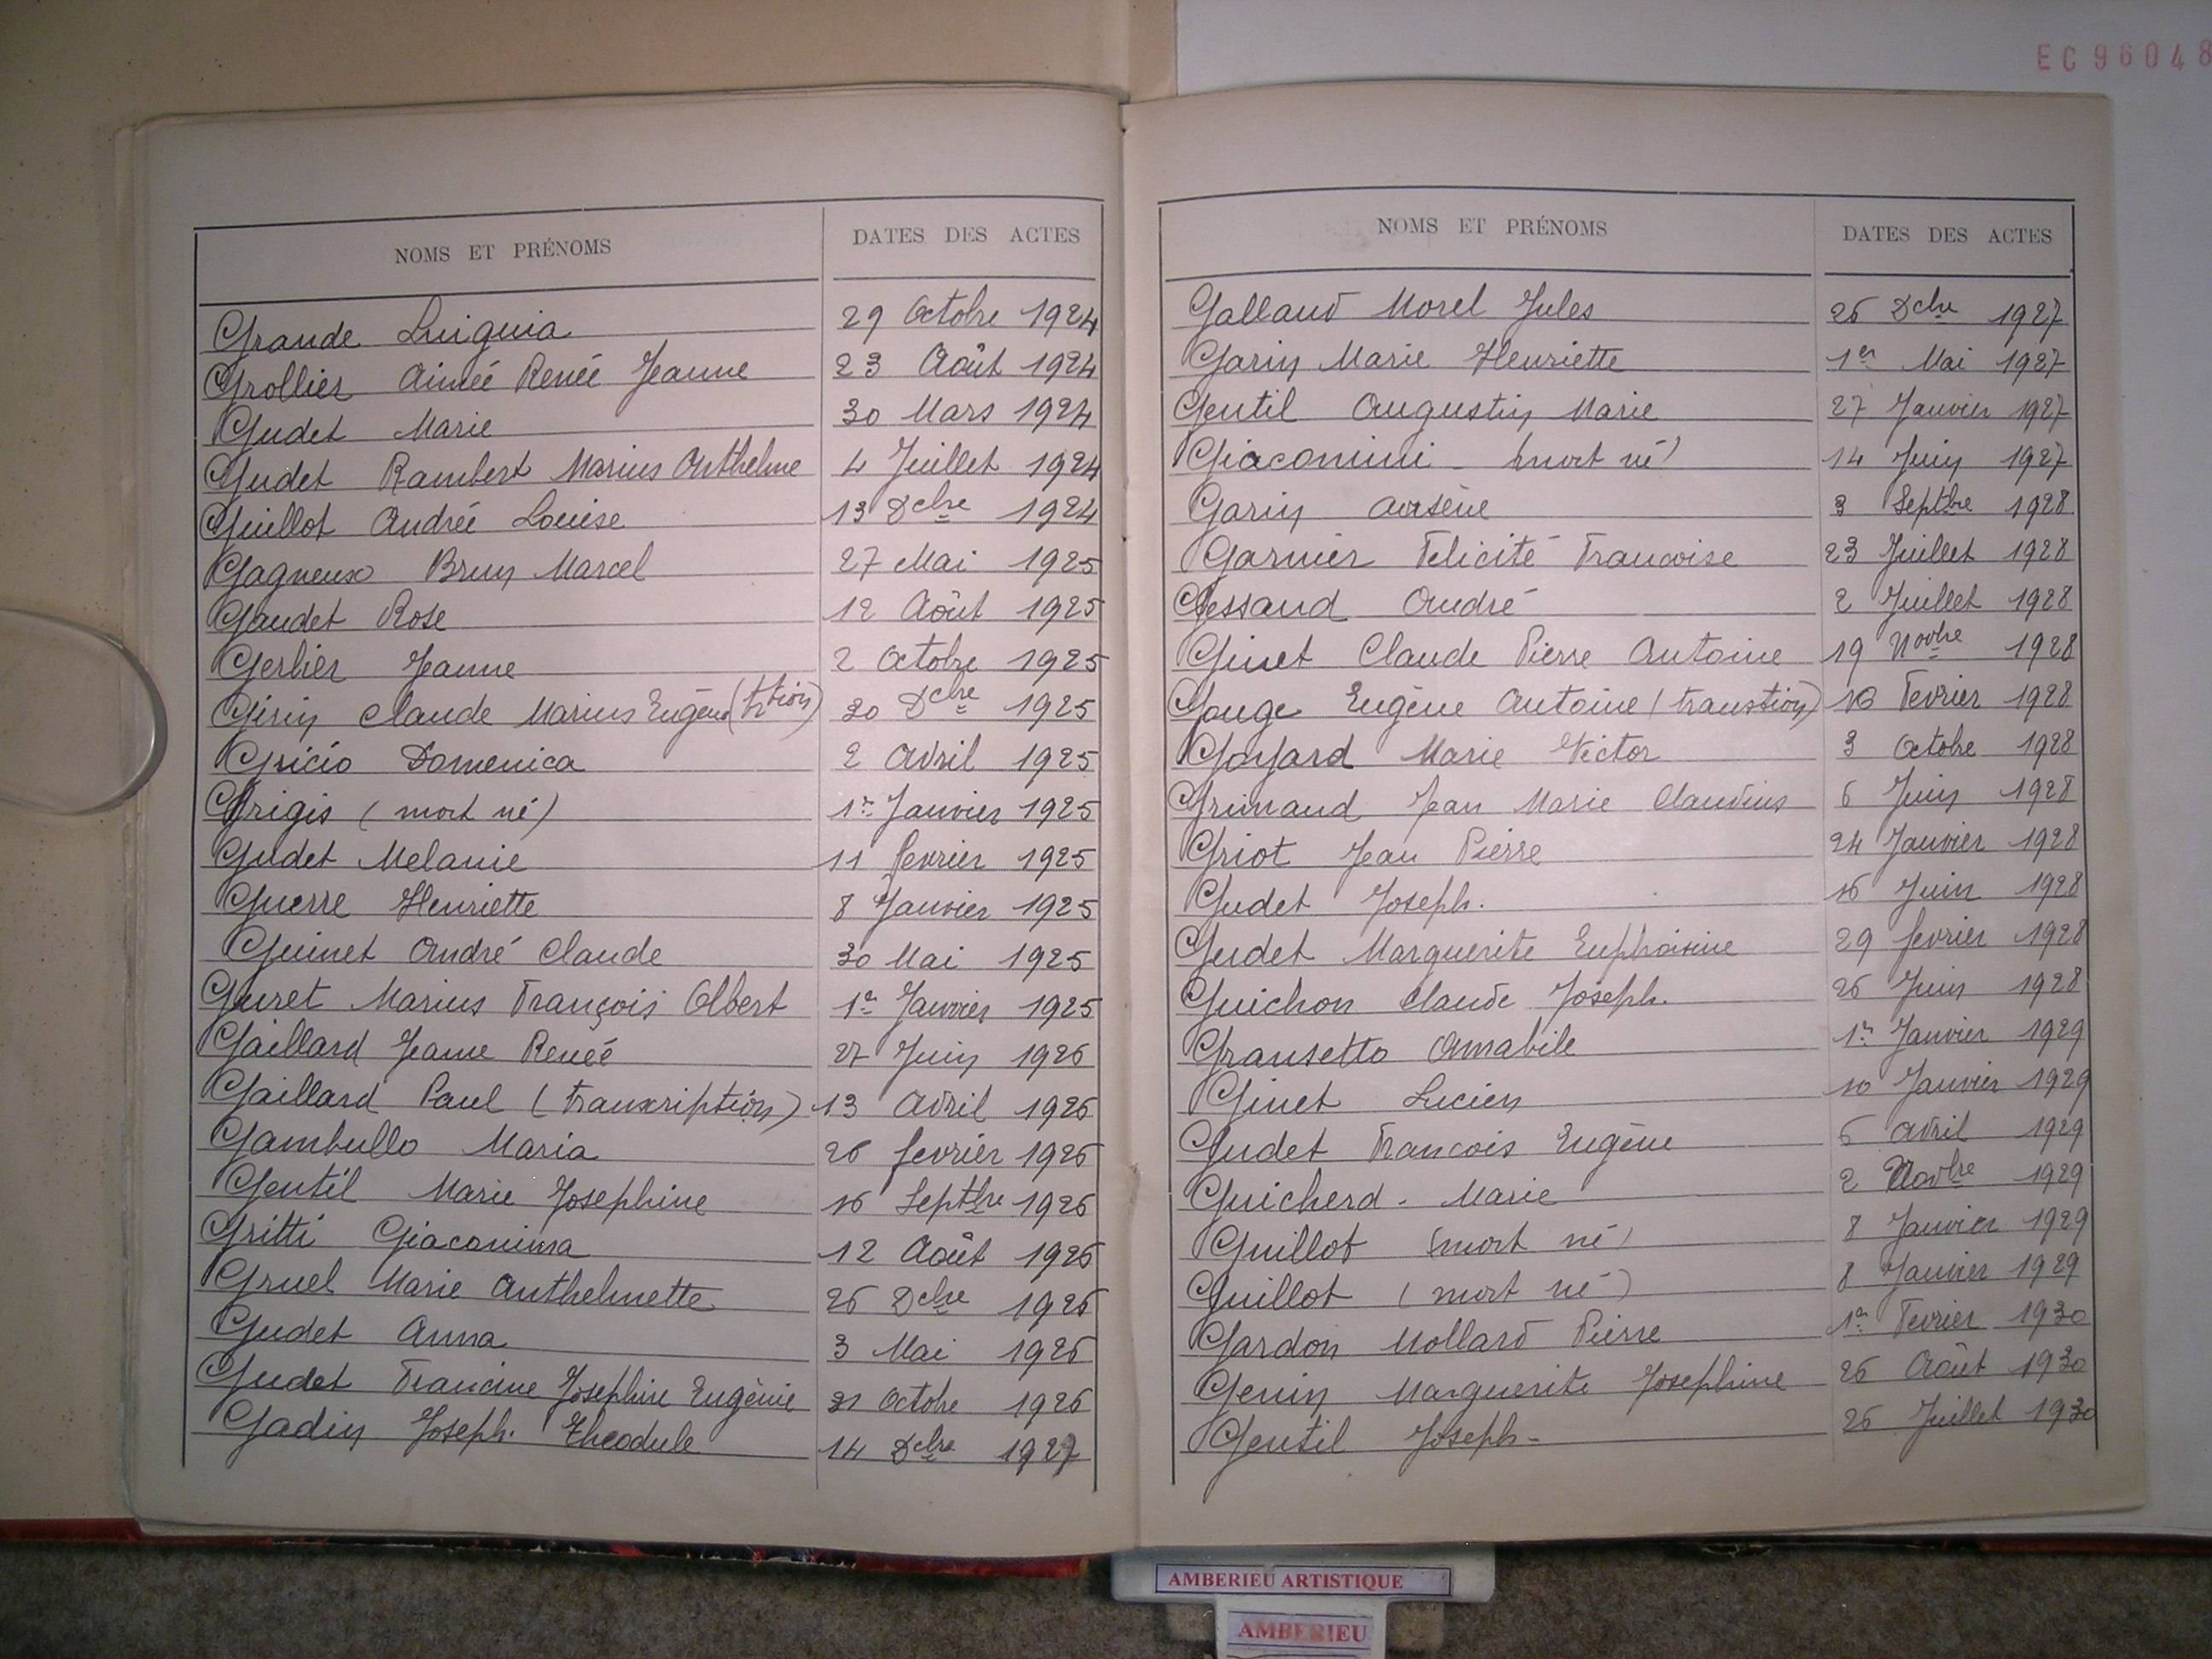 EC96048
NOMS ET PRÉNOMS DATES DES ACTES
Grande Luiguia 29 Octobre 1924
Grollier Aimée Renée Jeanne 23 Août 1924
Gudet Marie 30 Mars 1924
Gudet Rambert Marius Anthelme 4 Juillet 1924
Guillot Andrée Louise 13 Dcbre 1924
Gagneux Brun Marcel 27 Mai 1925
Gaudet Rose 12 Août 1925
Gerbier Jeanne 2 Octobre 1925
Girin Claude Marius Eugène 30 Dcbre 1925
Gricio Domenica 2 Avril 1925
Grigis (mort né) 1er Janvier 1925
Gudet Melanie 11 fevrier 1925
Guerre Henriette 8 Janvier 1925
Guinet André Claude 30 Mai 1925
Guret Marius François Albert 1er Janvier 1925
Gaillard Jeanne Renée 27 Juin 1926
Gaillard Paul (transcription) 13 Avril 1926
Gambullo Maria 26 fevrier 1926
Gentil Marie Josephine 16 Septbre 1926
Gritti Giaconima 12 Août 1926
Gruel Marie Anthelmette 26 Dcbre 1926
Gudet Anna 3 Mai 1926
Gudet Francine Josephine Eugènie 21 Octobre 1926
Gadin Joseph. Theodule 14 Dcbre 1927
NOMS ET PRÉNOMS DATES DES ACTES
Galland Morel Jules 26 Dcbre 1927
Garin Marie Henriette 1er Mai 1927
Gentil Augustin Marie 27 Janvier 1927
Giacomini - (mort né) 14 Juin 1927
Garin Arsène 3 Septbre 1928
Garnier Felicité Francoise 23 Juillet 1928
Gessand André 2 Juillet 1928
Ginet Claude Pierre Antoine 19 Novbre 1928
Gouge Eugène Antoine (transtion) 16 Fevrier 1928
Goyard Marie Victor 3 Octobre 1928
Grimaud Jean Marie Claudius 6 Juin 1928
Griot Jean Pierre 24 Janvier 1928
Gudet Joseph. 16 Juin 1928
Gudet Marguerite Euphrosine 29 fevrier 1928
Guichon Claude Joseph. 26 Juin 1928
Gransetto Amabile 1er Janvier 1929
Ginet Lucien 10 Janvier 1929
Gudet Francois Eugène 6 Avril 1929
Guicherd - Marie 2 Novbre 1929
Guillot (mort né) 8 Janvier 1929
Guillot (mort né) 8 Janvier 1929
Gardon Mollard Pierre 1er Fevrier 1930
Genin Marguerite Josephine 26 Août 1930
Gentil Joseph - 26 Juillet 1930
AMBERIEU ARTISTIQUE
AMBERIEU